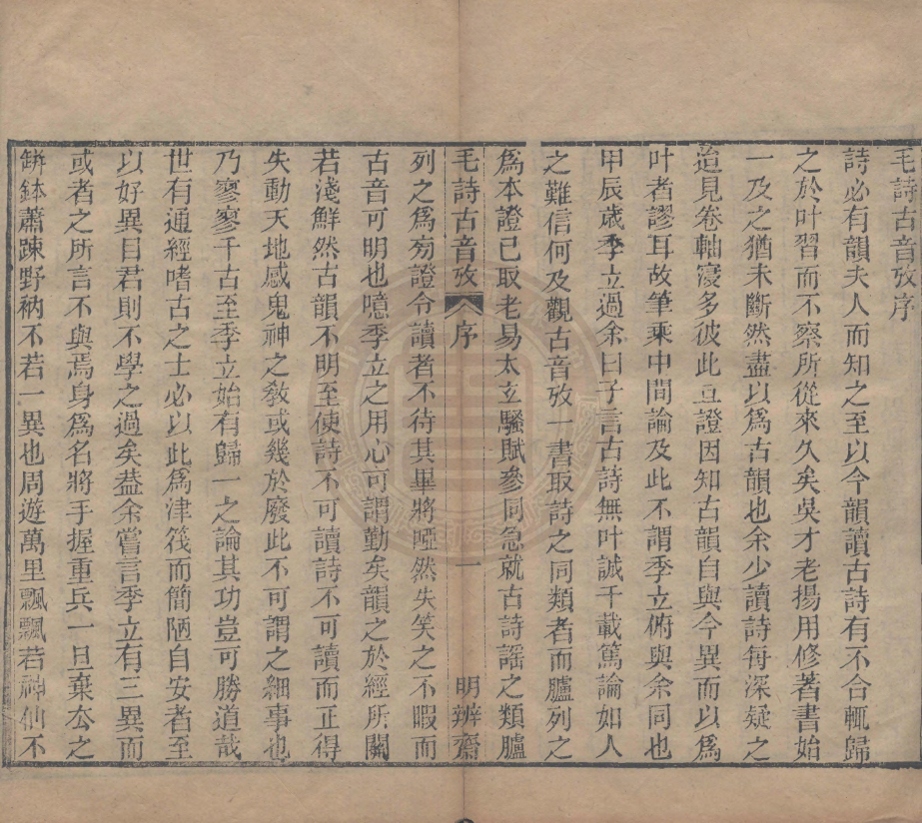 毛詩古音攷序
詩必有韻夫人而知之至以今韻讀古詩有不合輒歸
之於叶習而不察所從來久矣吳才老楊用修著書始
一及之猶未斷然盡以爲古韻也余少讀詩每深疑之
迨見卷軸寖多彼此互證因知古韻自與今異而以爲
叶者謬耳故筆乘中間論及此不謂季立俯與余同也
甲辰歲季立過余曰子言古詩無叶誠千載篤論如人
之難信何及觀古音攷一書取詩之同類者而臚列之
爲本證已取老易太玄騷賦參同急就古詩謡之類臚
毛詩古音攷 序 一 明辨齋
列之爲旁證令讀者不待其畢將啞然失笑之不暇而
古音可明也噫季立之用心可謂勤矣韻之於經所關
若淺鮮然古韻不明至使詩不可讀詩不可讀而正得
失動天地感鬼神之敎或幾於廢此不可謂之細事也
乃寥寥千古至季立始有歸一之論其功豈可勝道哉
世有通經嗜古之士必以此爲津筏而簡陋自安者至
以好異目君則不學之過矣葢余嘗言季立有三異而
或者之所言不與焉身爲名將手握重兵一旦棄去之
缾鉢蕭踈野衲不若一異也周遊萬里飄飄若神仙不